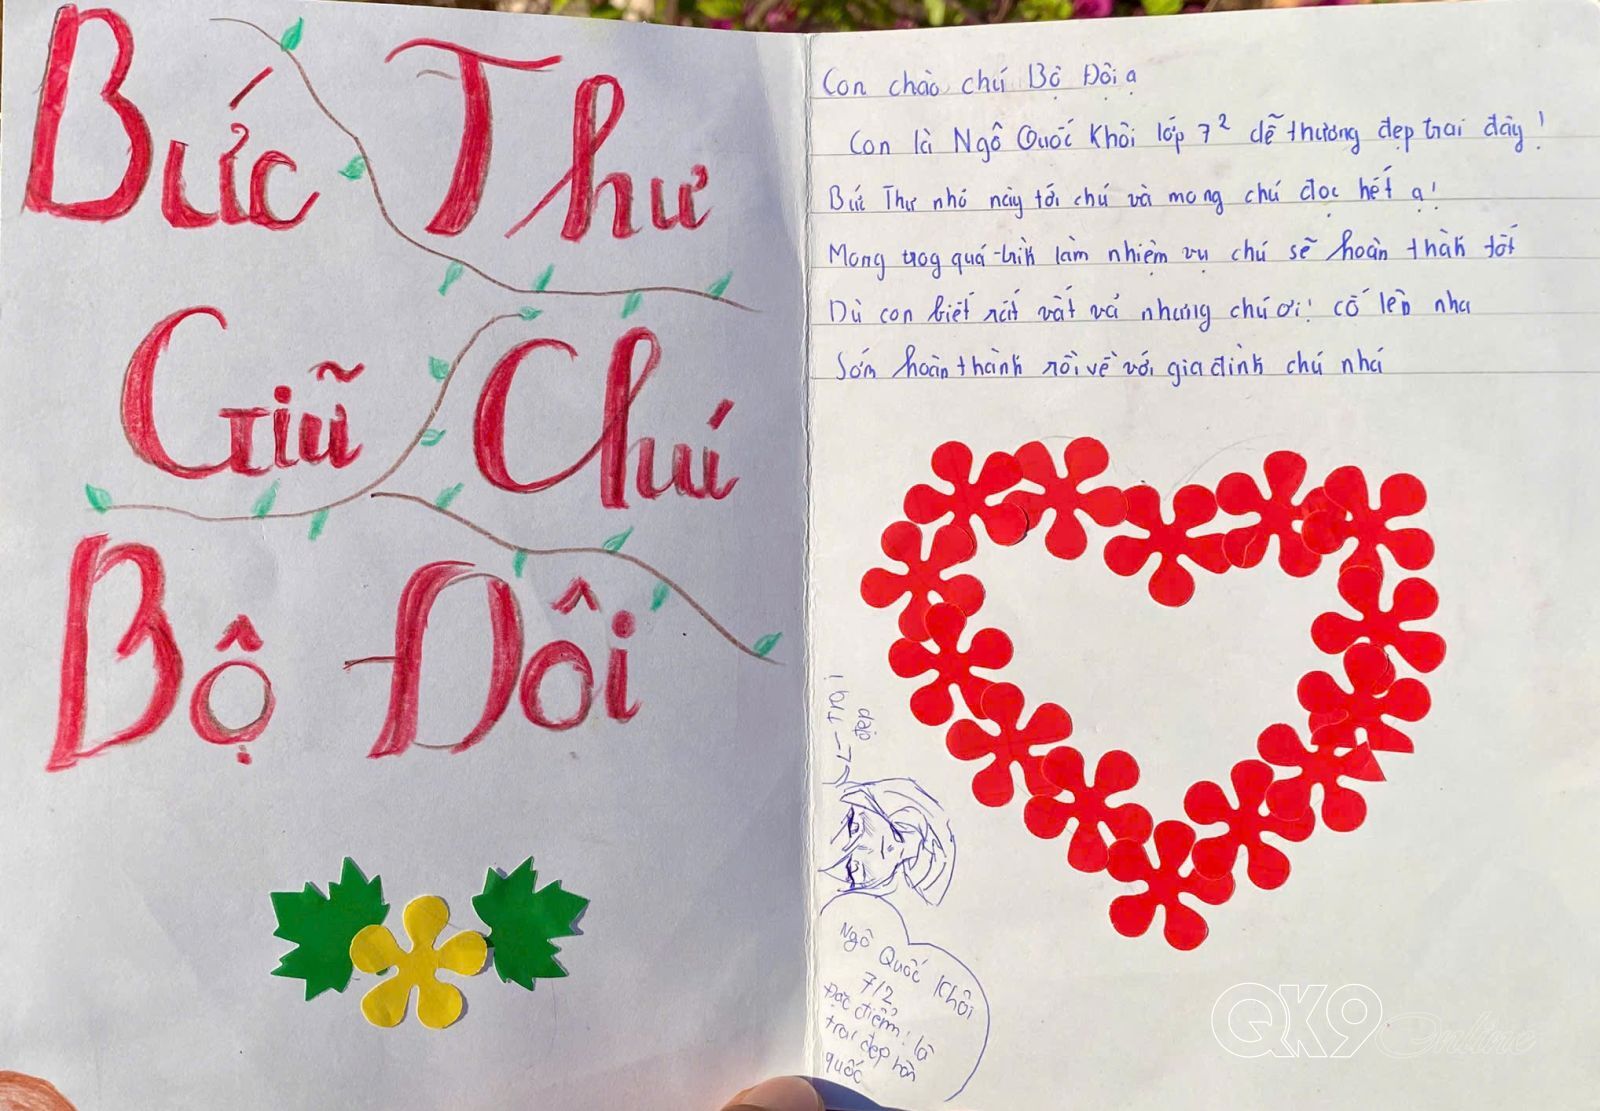 Bức Thư
Giữ Chú
Bộ Đôi
Con chào chú Bộ Đội ạ
Con là Ngô Quốc Khôi lớp 7² dễ thương đẹp trai đây!
Bức Thư nhỏ này tới chú và mong chú đọc hết ạ!
Mong trog quá-trìh làm nhiệm vụ chú sẽ hoàn thàh tốt
Dù con biết rất vất vả nhưng chú ơi! cố lên nha
Sớm hoàn thành rồi về với gia đình chú nhá
Trai
đẹp
Ngô Quốc Khôi
7/2
Đặc điểm: là
trai đẹp hàn
quốc
QK9 Online